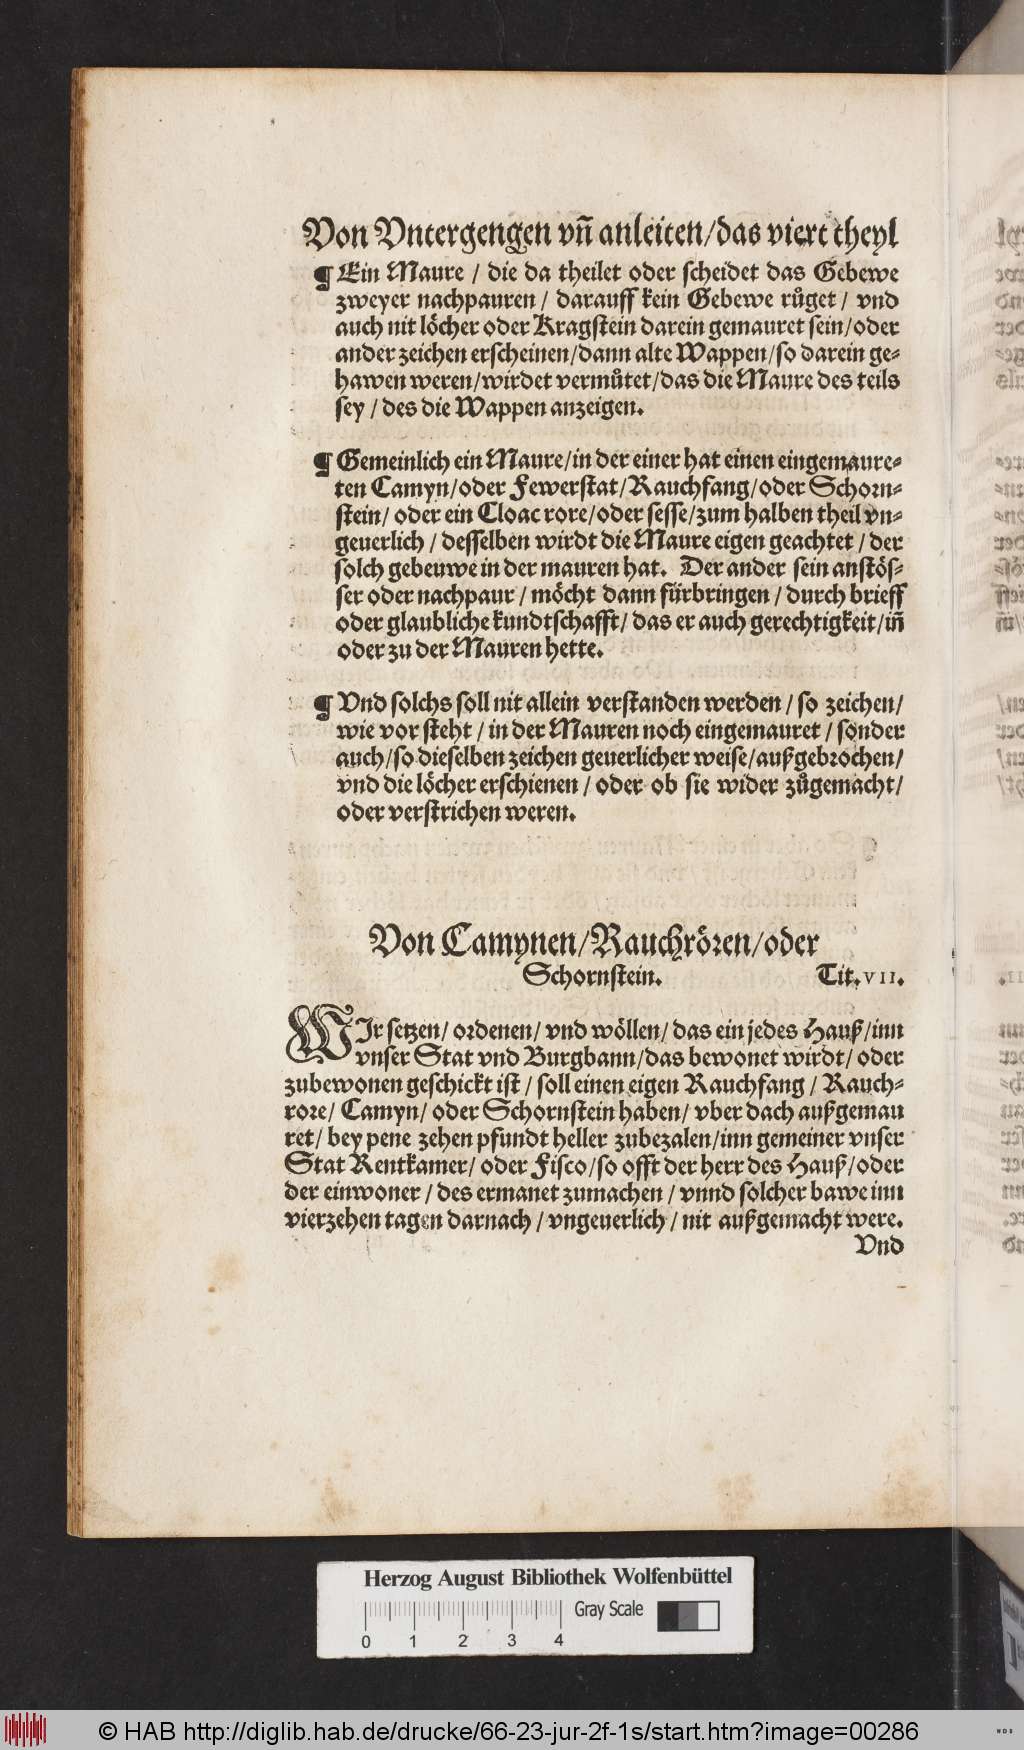 Von Vntergengen vñ anleiten/das viert theyl
¶ Ein Maure / die da theilet oder scheidet das Gebewe
zweyer nachpauren / darauff kein Gebewe růget / vnd
auch nit löcher oder Kragstein darein gemauret sein/oder
ander zeichen erscheinen/dann alte Wappen/so darein ge⸗
hawen weren/wirdet vermůtet/das die Maure des teils
sey / des die Wappen anzeigen.
¶ Gemeinlich ein Maure/in der einer hat einen eingemaure⸗
ten Camyn/oder Fewerstat/Rauchfang/oder Schorn⸗
stein/ oder ein Cloac rore/oder sesse/zum halben theil vn⸗
geuerlich / desselben wirdt die Maure eigen geachtet / der
solch gebeuwe in der mauren hat. Der ander sein anstös⸗
ser oder nachpaur / möcht dann fürbringen / durch brieff
oder glaubliche kundtschafft/ das er auch gerechtigkeit/iñ
oder zu der Mauren hette.
¶ Vnd solchs soll nit allein verstanden werden / so zeichen/
wie vor steht / in der Mauren noch eingemauret / sonder
auch/so dieselben zeichen geuerlicher weise/außgebrochen/
vnd die löcher erschienen / oder ob sie wider zůgemacht/
oder verstrichen weren.
Von Camynen/Rauchrören/oder
Schornstein. Tit.VII.
WIr setzen/ ordenen/ vnd wöllen/ das ein jedes Hauß/inn
vnser Stat vnd Burgbann/das bewonet wirdt/ oder
zubewonen geschickt ist / soll einen eigen Rauchfang / Rauch⸗
rore/ Camyn/ oder Schornstein haben/ vber dach außgemau
ret/ bey pene zehen pfundt heller zubezalen/inn gemeiner vnser
Stat Rentkamer/ oder Fisco/so offt der herr des Hauß/oder
der einwoner / des ermanet zumachen / vnnd solcher bawe inn
vierzehen tagen darnach / vngeuerlich / nit außgemacht were.
Vnd
Herzog August Bibliothek Wolfenbüttel
Gray Scale
0 1 2 3 4
© HAB http://diglib.hab.de/drucke/66-23-jur-2f-1s/start.htm?image=00286